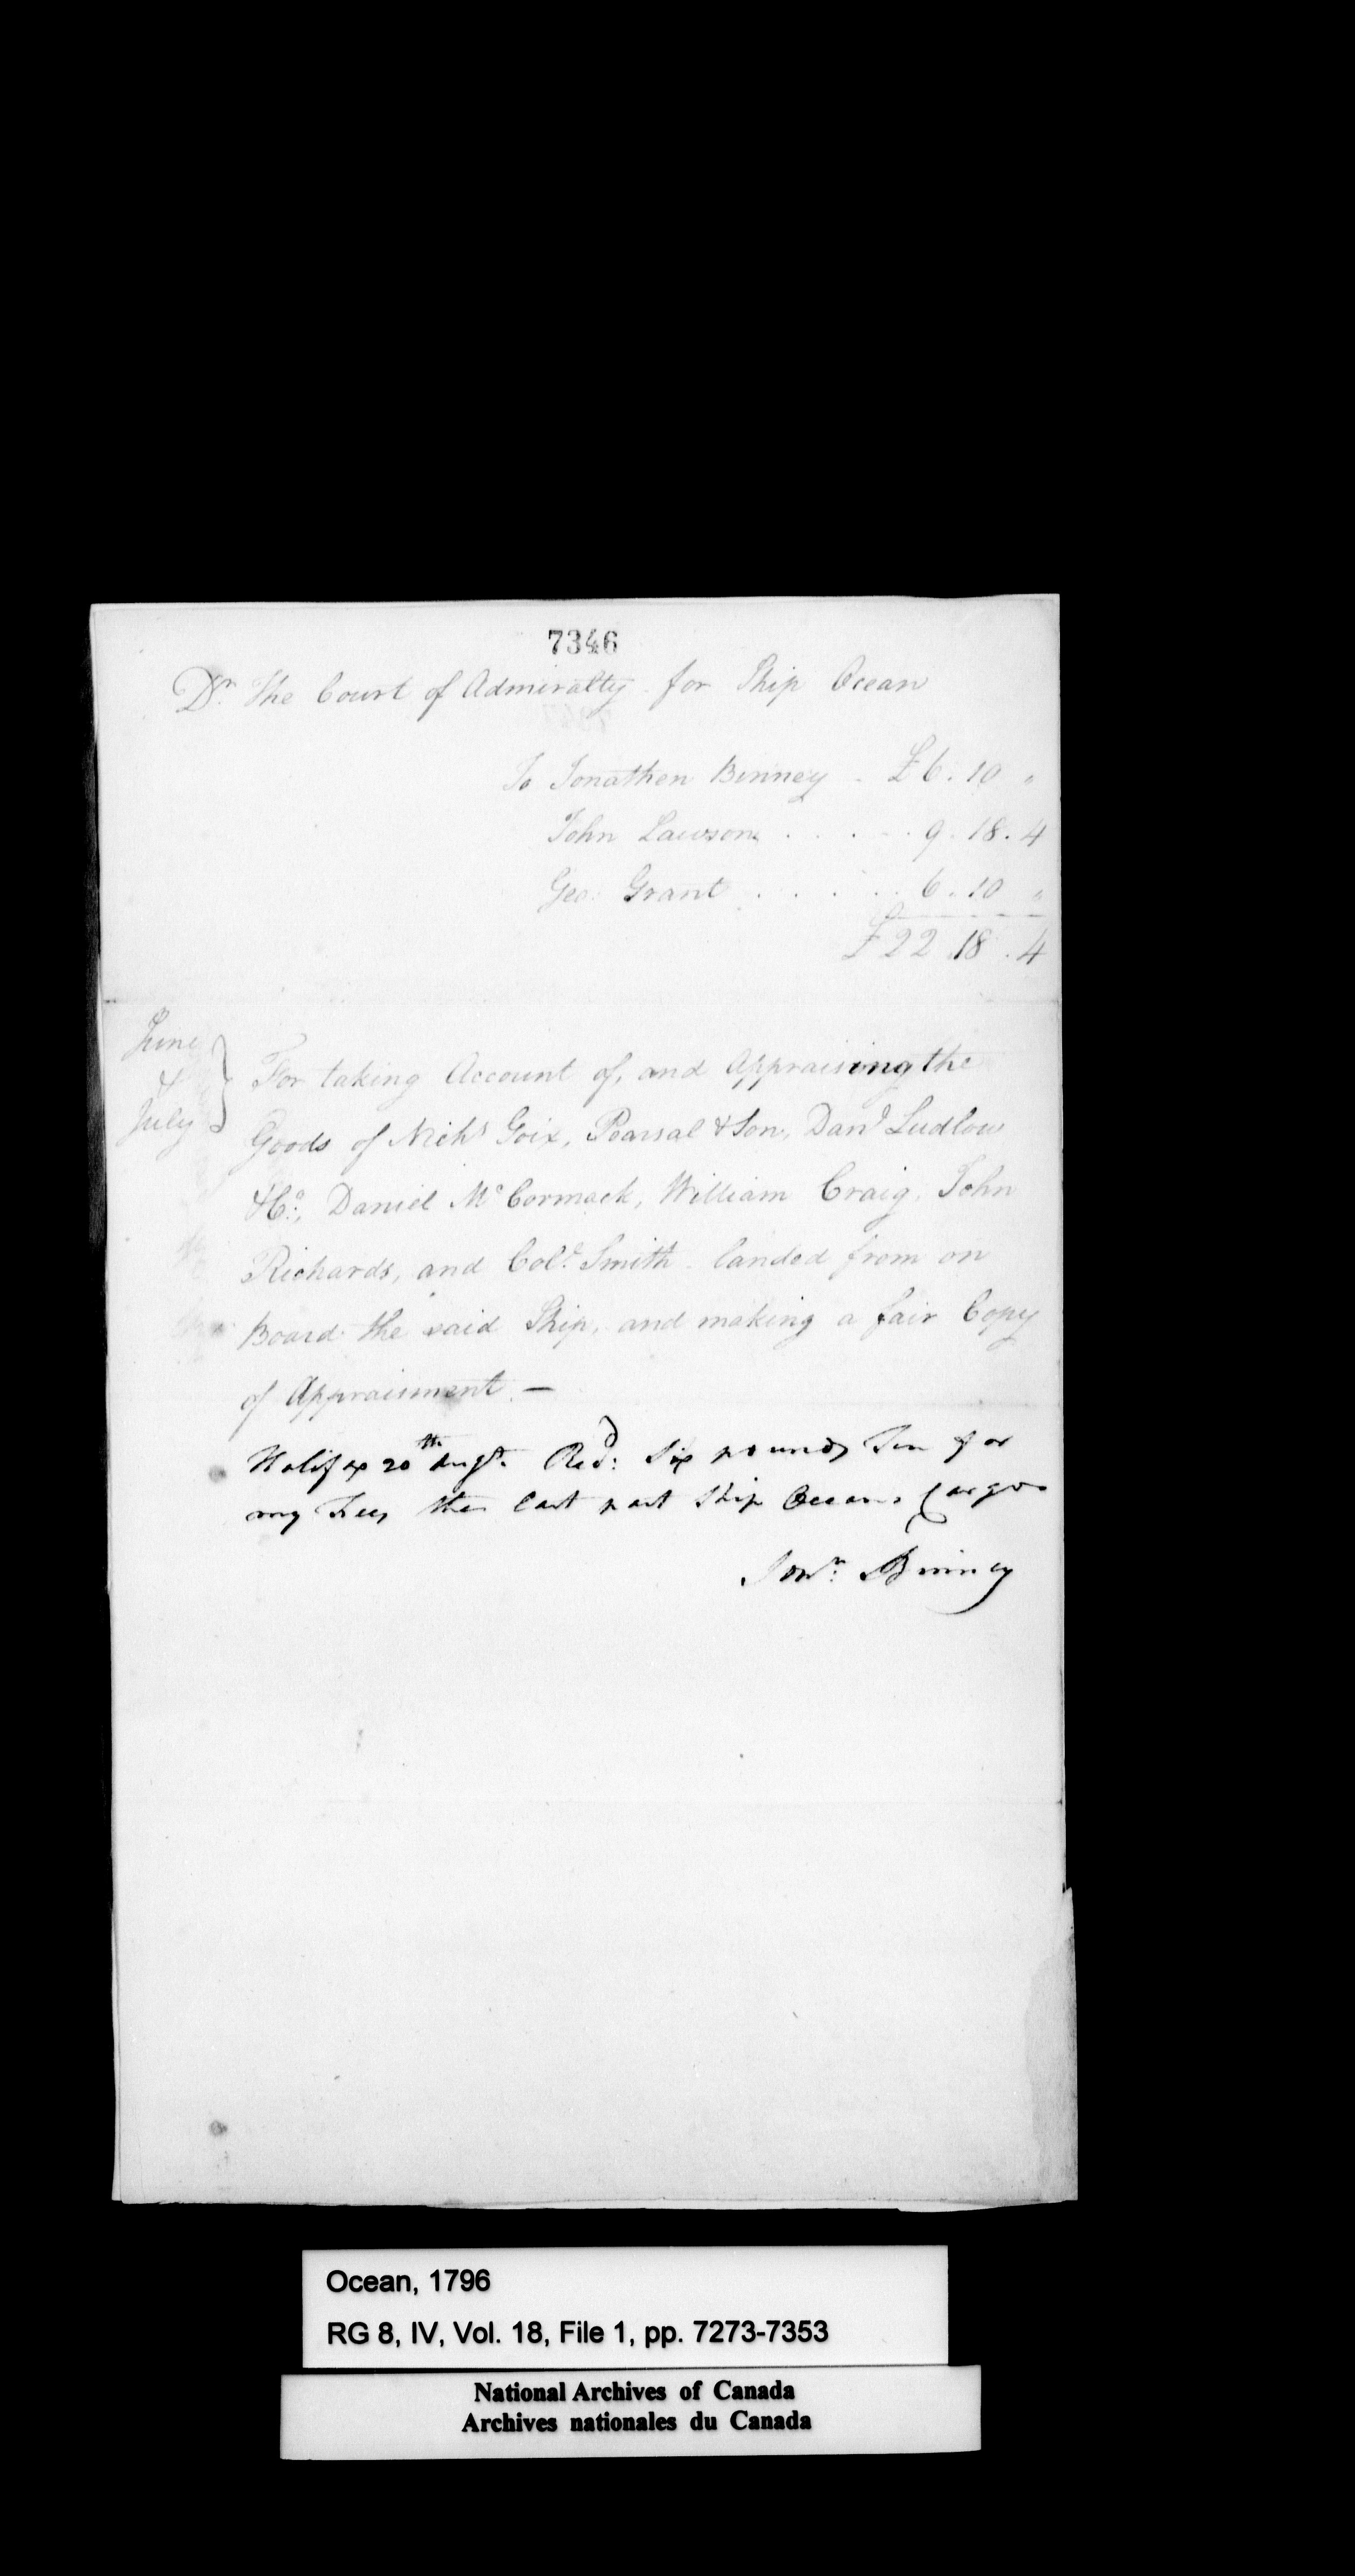 7346
Dr. The Court of Admiralty for Ship Ocean
To Jonathen Binney - £6. 10 "
John Lawson . . . . . 9. 18. 4
Geo: Grant . . . . . 6. 10 "
£22 .18 . 4
June
&
July
For taking Account of, and Appraising the
Goods of Nichs Goix, Pearsal & Son, Danl Ludlow
& Co., Daniel McCormack, William Craig, John
Richards, and Coll. Smith landed from on
Board the said Ship, and making a fair Copy
of Appraisment. —
Halifax 20th Augt. Recd: Six pounds Ten for
my Fees the last part Ship Oceans Cargo
Jonn: Binney
Ocean, 1796
RG 8, IV, Vol. 18, File 1, pp. 7273-7353
National Archives of Canada
Archives nationales du Canada